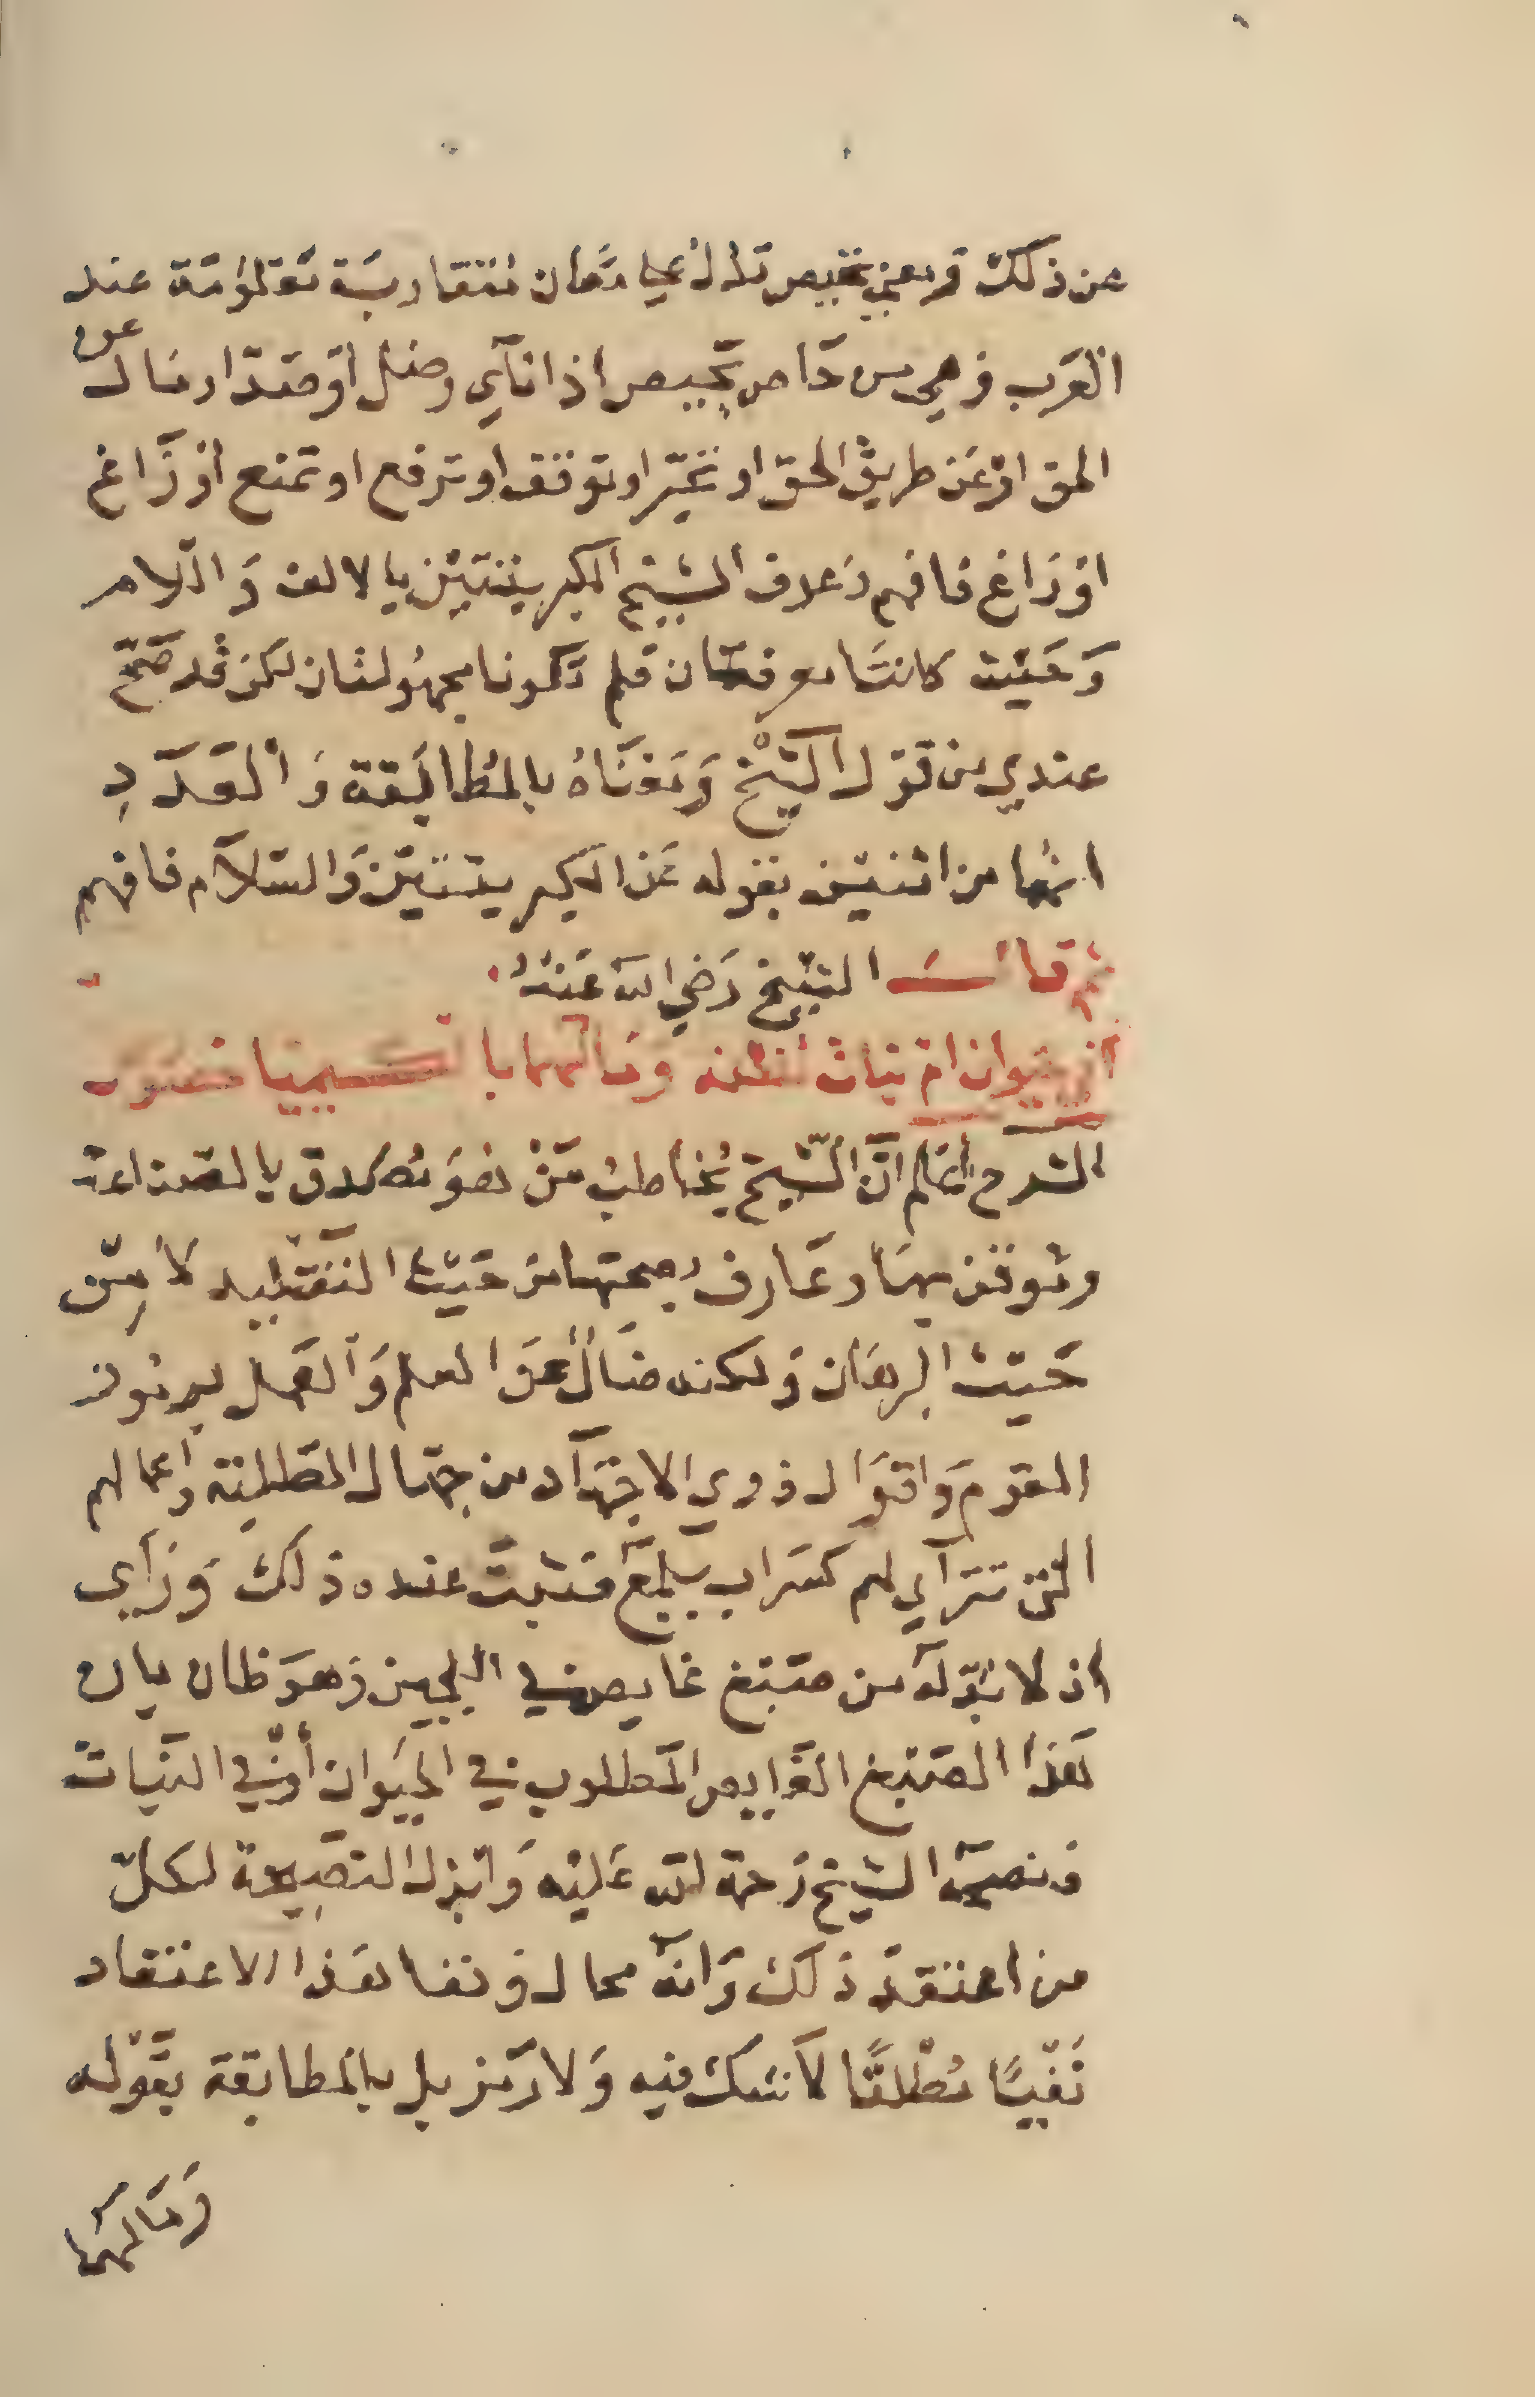 عن ذلك ومعني تحيص تدل علي معان متقاربة معلومة عند
العرب وهي من حاص يحيص اذا نآي وضل او صد او مال عن
الحق او عن طريق الحق او تحير او توقف او ترفع او تمنع او زاغ
او زاغ فافهم وعرف الشيخ الكبريتتين بالالف واللام
وحيث كانتا معرفتان فلم تكونا مجهولتان لكن قد صح
عندي من قول الشيخ ومعناه بالمطابقة والعدد
انهما من اثنتين بقوله عن الكبريتتين والسلام فافهم
ثم قال الشيخ رضي الله عنه
أحيوان ام نبات تظنه وما لهما بالسيميا
الشرح اعلم ان الشيخ يخاطب من هو مصدق بالصناعة
وموقن بها وعارف بصحتها من حيث التقليد لا من
حيث البرهان ولكنه ضال عن العلم والعمل برموز
القوم واقوال ذوي الاجتهاد من جهال الطلبة واعمالهم
التي تترآي لهم كسراب يلمع فثبت عنده ذلك وراي
اذ لا بد له من صبغ غايص في اللجين وهو ظان بان
هذا الصبغ الغايص المطلوب في الحيوان أو في النبات
فنصحه الشيخ رحمة الله عليه وابذل النصيحة لكل
من اعتقد ذلك وانه محال ونفا هذا الاعتقاد
نفيًا مطلقًا لا شك فيه ولا رمز بل بالمطابقة بقوله
وما لهما